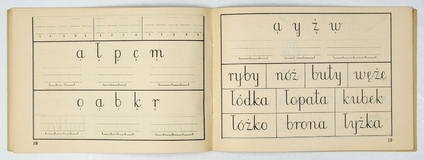 ą l p c m
o a b k r
18
ą y ż w
ryby nóż buty węże
łódka łopata kubek
łóżko brona łyżka
19